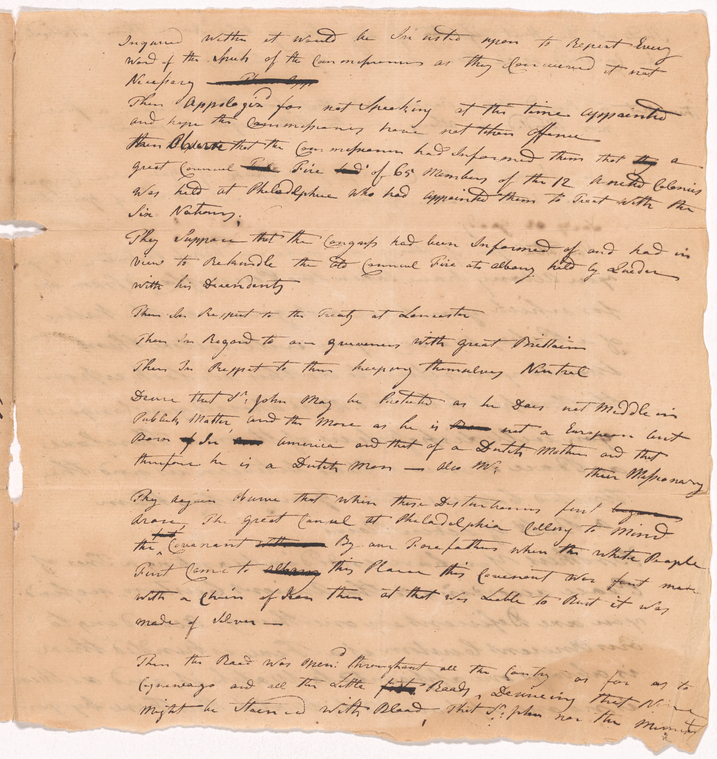 Inquired wither it would be Insisted upon to Repeat Every
Word of the Speech of the Commissioners as they Conceived it not
Necessary
Then Appologiz'd for not Speaking at the time appointed
and hope the Commissioners have not taken offence
then Observe that the Commissioners had Informed them that a
great Councel Fire of 65 Members of the 12 United Colonies
was held at Philadelphia who had appointed them to Treat with the
Six Nations.
They Suppose that the Congress had been Informed of and had in
view to Rekindle the old Councel Fire at albany held by Queder
with his Descendents
Then In Respect to the Treaty at Lancaster
Then In Regard to our grievences with great Brittain
Then In Respect to their keeping themselves Neutral
Desire that Sr. John May be Protected as he Does not Meddle in
Publick Matter, and the More as he is not a European but
Born In america and that of a Dutch Mother and that
therefore he is a Dutch Man — also Mr. their Missionary
They again observe that when these Disturbances first
arose, The Great Councel at Philadelphia Calling to Mind
the Covenant By our Forefathers when the white People
First Came to this Place this Covenant was first made
with a Chain of Iron then as that was Liable to Rust it was
made of Silver —
Then the Road was open'd throughout all the Contry as far as to
and all the Little Roads, Desireing that None
Might be Stained with Blood, that Sr. John nor the